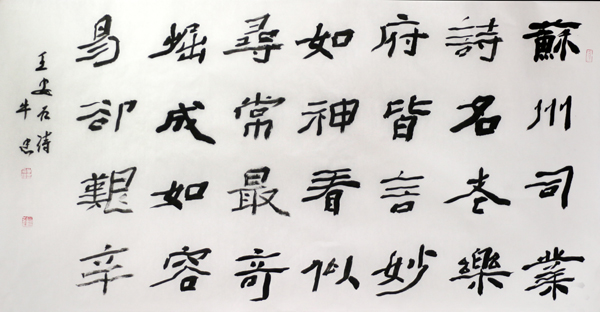 蘇州司業
詩名老樂
府皆言妙
如神看似
尋常最奇
崛成如容
易卻艱辛
王安石詩
牛